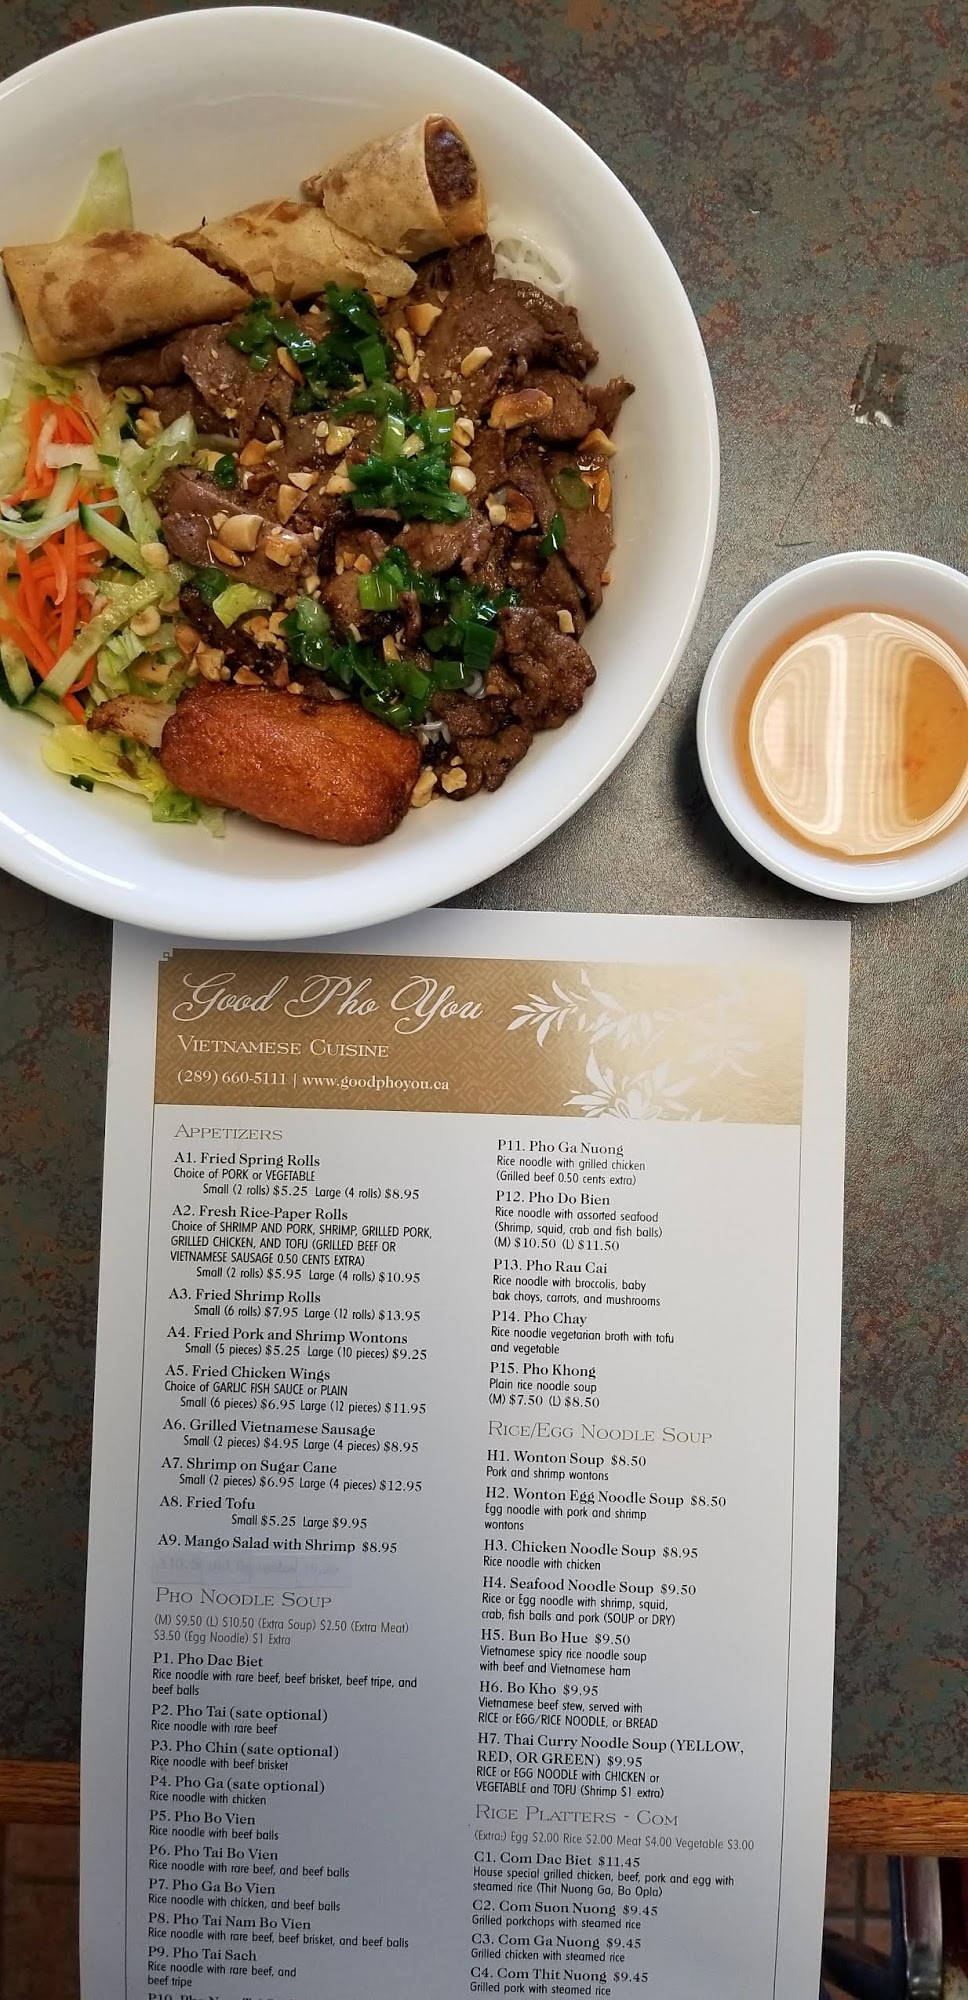 Good Pho You
VIETNAMESE CUISINE
(289) 660-5111 | www.goodphoyou.ca
APPETIZERS
A1. Fried Spring Rolls
Choice of PORK or VEGETABLE
Small (2 rolls) $5.25 Large (4 rolls) $8.95
A2. Fresh Rice-Paper Rolls
Choice of SHRIMP AND PORK, SHRIMP, GRILLED PORK,
GRILLED CHICKEN, AND TOFU (GRILLED BEEF OR
VIETNAMESE SAUSAGE 0.50 CENTS EXTRA)
Small (2 rolls) $5.95 Large (4 rolls) $10.95
A3. Fried Shrimp Rolls
Small (6 rolls) $7.95 Large (12 rolls) $13.95
A4. Fried Pork and Shrimp Wontons
Small (5 pieces) $5.25 Large (10 pieces) $9.25
A5. Fried Chicken Wings
Choice of GARLIC FISH SAUCE or PLAIN
Small (6 pieces) $6.95 Large (12 pieces) $11.95
A6. Grilled Vietnamese Sausage
Small (2 pieces) $4.95 Large (4 pieces) $8.95
A7. Shrimp on Sugar Cane
Small (2 pieces) $6.95 Large (4 pieces) $12.95
A8. Fried Tofu
Small $5.25 Large $9.95
A9. Mango Salad with Shrimp $8.95
PHO NOODLE SOUP
(M) $9.50 (L) $10.50 (Extra Soup) $2.50 (Extra Meat)
$3.50 (Egg Noodle) $1 Extra
P1. Pho Dac Biet
Rice noodle with rare beef, beef brisket, beef tripe, and
beef balls
P2. Pho Tai (sate optional)
Rice noodle with rare beef
P3. Pho Chin (sate optional)
Rice noodle with beef brisket
P4. Pho Ga (sate optional)
Rice noodle with chicken
P5. Pho Bo Vien
Rice noodle with beef balls
P6. Pho Tai Bo Vien
Rice noodle with rare beef, and beef balls
P7. Pho Ga Bo Vien
Rice noodle with chicken, and beef balls
P8. Pho Tai Nam Bo Vien
Rice noodle with rare beef, beef brisket, and beef balls
P9. Pho Tai Sach
Rice noodle with rare beef, and
beef tripe
P11. Pho Ga Nuong
Rice noodle with grilled chicken
(Grilled beef 0.50 cents extra)
P12. Pho Do Bien
Rice noodle with assorted seafood
(Shrimp, squid, crab and fish balls)
(M) $10.50 (L) $11.50
P13. Pho Rau Cai
Rice noodle with broccolis, baby
bak choys, carrots, and mushrooms
P14. Pho Chay
Rice noodle vegetarian broth with tofu
and vegetable
P15. Pho Khong
Plain rice noodle soup
(M) $7.50 (L) $8.50
RICE/EGG NOODLE SOUP
H1. Wonton Soup $8.50
Pork and shrimp wontons
H2. Wonton Egg Noodle Soup $8.50
Egg noodle with pork and shrimp
wontons
H3. Chicken Noodle Soup $8.95
Rice noodle with chicken
H4. Seafood Noodle Soup $9.50
Rice or Egg noodle with shrimp, squid,
crab, fish balls and pork (SOUP or DRY)
H5. Bun Bo Hue $9.50
Vietnamese spicy rice noodle soup
with beef and Vietnamese ham
H6. Bo Kho $9.95
Vietnamese beef stew, served with
RICE or EGG/RICE NOODLE, or BREAD
H7. Thai Curry Noodle Soup (YELLOW,
RED, OR GREEN) $9.95
RICE or EGG NOODLE with CHICKEN or
VEGETABLE and TOFU (Shrimp $1 extra)
RICE PLATTERS - COM
(Extra:) Egg $2.00 Rice $2.00 Meat $4.00 Vegetable $3.00
C1. Com Dac Biet $11.45
House special grilled chicken, beef, pork and egg with
steamed rice (Thit Nuong Ga, Bo Opla)
C2. Com Suon Nuong $9.45
Grilled porkchops with steamed rice
C3. Com Ga Nuong $9.45
Grilled chicken with steamed rice
C4. Com Thit Nuong $9.45
Grilled pork with steamed rice